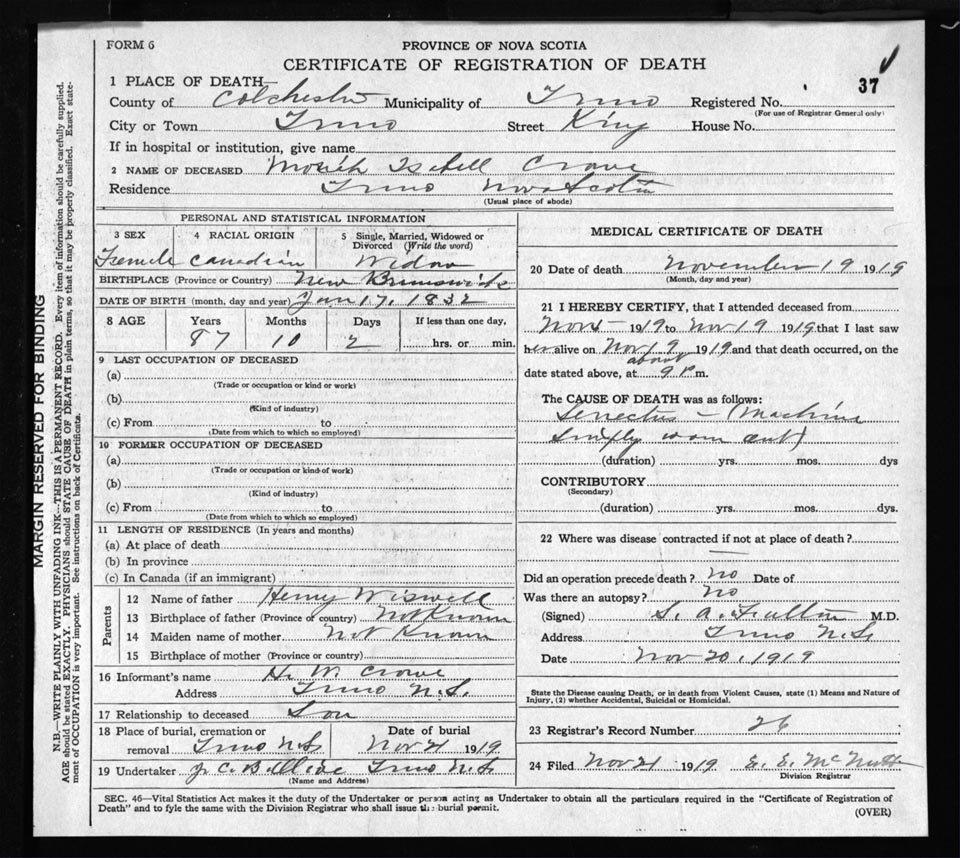 FORM 6
PROVINCE OF NOVA SCOTIA
CERTIFICATE OF REGISTRATION OF DEATH
37
1 PLACE OF DEATH—
County of Colchester Municipality of Truro Registered No.
(For use of Registrar General only)
City or Town Truro Street King House No.
If in hospital or institution, give name
2 NAME OF DECEASED Isabell Crowe
Residence Truro Nova Scotia
(Usual place of abode)
PERSONAL AND STATISTICAL INFORMATION
3 SEX 4 RACIAL ORIGIN 5 Single, Married, Widowed or
Divorced (Write the word)
Female Canadian Widow
BIRTHPLACE (Province or Country) New Brunswick
DATE OF BIRTH (month, day and year) Jan 17, 1832
8 AGE Years Months Days If less than one day,
87 10 2 hrs. or min.
9 LAST OCCUPATION OF DECEASED
(a)
(Trade or occupation or kind or work)
(b)
(Kind of industry)
(c) From to
(Date from which to which so employed)
10 FORMER OCCUPATION OF DECEASED
(a)
(Trade or occupation or kind of work)
(b)
(Kind of industry)
(c) From to
(Date from which to which so employed)
11 LENGTH OF RESIDENCE (In years and months)
(a) At place of death
(b) In province
(c) In Canada (if an immigrant)
Parents
12 Name of father Henry Wiswell
13 Birthplace of father (Province or country) Not Known
14 Maiden name of mother Not Known
15 Birthplace of mother (Province or country)
16 Informant's name H. W. Crowe
Address Truro N.S.
17 Relationship to deceased Son
18 Place of burial, cremation or Date of burial
removal Truro N S Nov 21 1919
19 Undertaker J. C. Truro N.S
(Name and Address)
MEDICAL CERTIFICATE OF DEATH
20 Date of death November 19 1919
(Month, day and year)
21 I HEREBY CERTIFY, that I attended deceased from
1919 to Nov 19 1919 that I last saw
her alive on Nov 19 1919 and that death occurred, on the
about
date stated above, at 9 P m.
The CAUSE OF DEATH was as follows:
Senectus - (Machine
simply worn out)
(duration) yrs. mos. dys
CONTRIBUTORY
(Secondary)
(duration) yrs. mos. dys.
22 Where was disease contracted if not at place of death?
—
Did an operation precede death? no Date of
Was there an autopsy? no
(Signed) S. A. Fulton M.D.
Address Truro N.S.
Date Nov 20, 1919
State the Disease causing Death, or in death from Violent Causes, state (1) Means and Nature of
Injury, (2) whether Accidental, Suicidal or Homicidal.
23 Registrar's Record Number 26
24 Filed Nov 21 1919 E. E. McNutt
Division Registrar
SEC. 46—Vital Statistics Act makes it the duty of the Undertaker or person acting as Undertaker to obtain all the particulars required in the "Certificate of Registration of
Death" and to fyle the same with the Division Registrar who shall issue the burial permit.
(OVER)
MARGIN RESERVED FOR BINDING
N.B.—WRITE PLAINLY WITH UNFADING INK—THIS IS A PERMANENT RECORD. Every item of information should be carefully supplied.
AGE should be stated EXACTLY. PHYSICIANS should STATE CAUSE OF DEATH in plain terms, so that it may be properly classified. Exact state-
ment of OCCUPATION is very important. See instructions on back of Certificate.